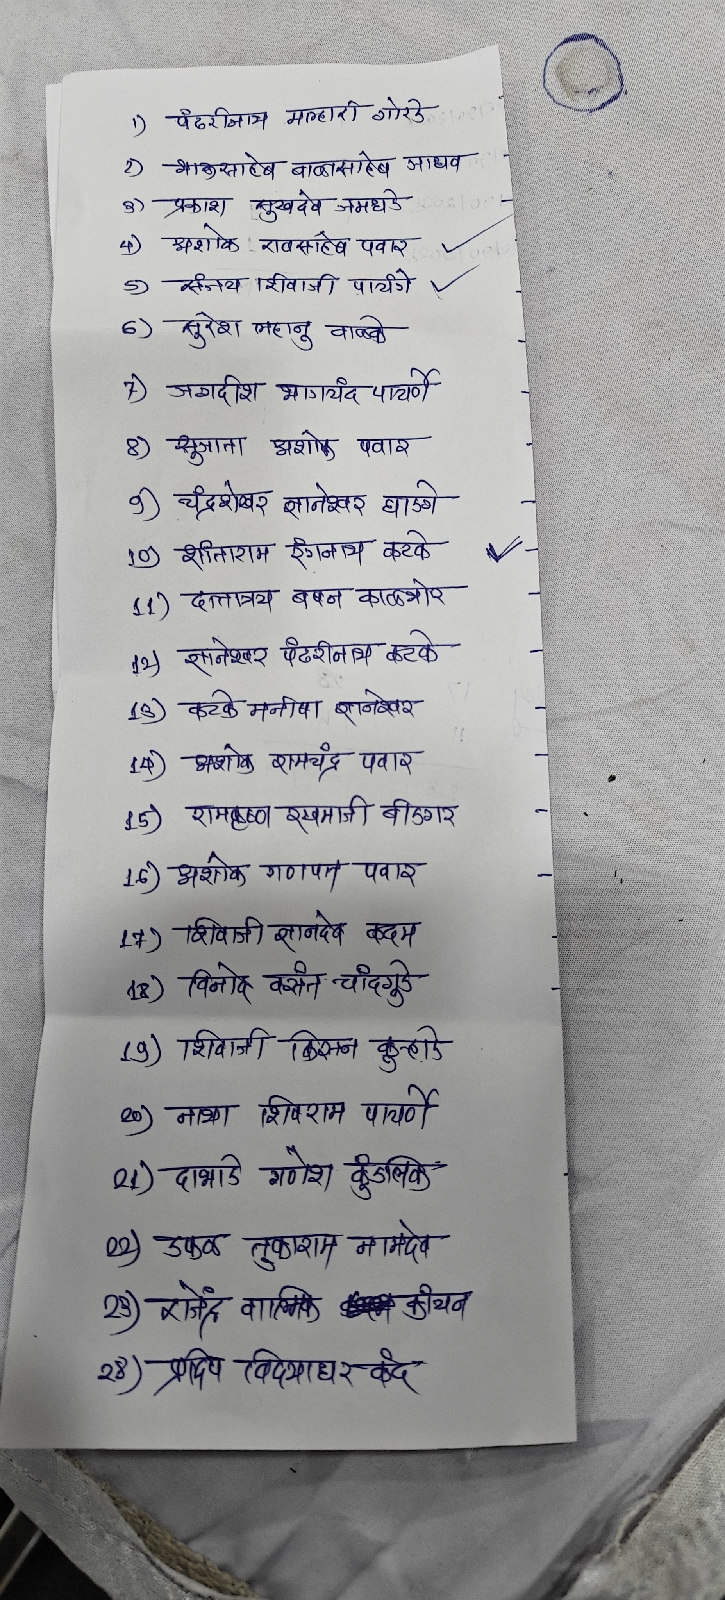 1) पंढरीनाथ मल्हारी गोरडे
2) भाऊसाहेब बाळासाहेब जाधव
3) प्रकाश सुखदेव जमधडे
4) अशोक रावसाहेब पवार
5) संजय शिवाजी पाचंगे
6) सुरेश महानु वाळके
7) जगदीश भागचंद पाचर्णे
8) सुजाता अशोक पवार
9) चंद्रशेखर ज्ञानेश्वर घाडगे
10) शांताराम रंगनाथ कटके
11) दत्तात्रय बबन काळभोर
12) ज्ञानेश्वर पंढरीनाथ कटके
13) कटके मनीषा ज्ञानेश्वर
14) अशोक रामचंद्र पवार
15) रामकृष्ण रखमाजी बीडगर
16) अशोक गणपत पवार
17) शिवाजी ज्ञानदेव कदम
18) विनोद वसंत चांदगुडे
19) शिवाजी किसन कुऱ्हाडे
20) नाथा शिवराम पाचर्णे
21) दाभाडे गणेश कुंडलिक
22) डफळ तुकाराम नामदेव
23) राजेंद्र वाल्मिक कांचन
24) प्रदिप विदयाधर कंद